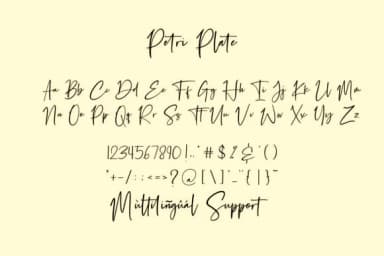 Petri Plate
Aa Bb Cc Dd Ee Ff Gg Hh Ii Jj Kk Ll Mm
Nn Oo Pp Qq Rr Ss Tt Uu Vv Ww Xx Yy Zz
1234567890!..'#$%&'()
'+-/:;<=>?@[\]^_¨{|}~
Mùltilíñgúâl Support